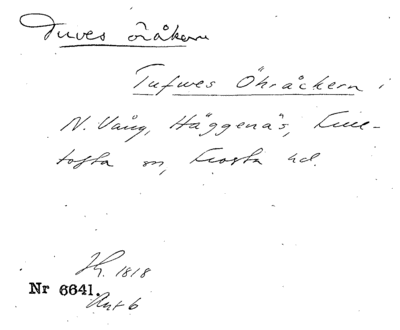 Tuves öråkern
Tufwes Öhråckern i
N. Vång, Häggenäs, Hure-
tofta sn, Frosta hd.
Jh. 1818
Nr 6641.
Akt 6